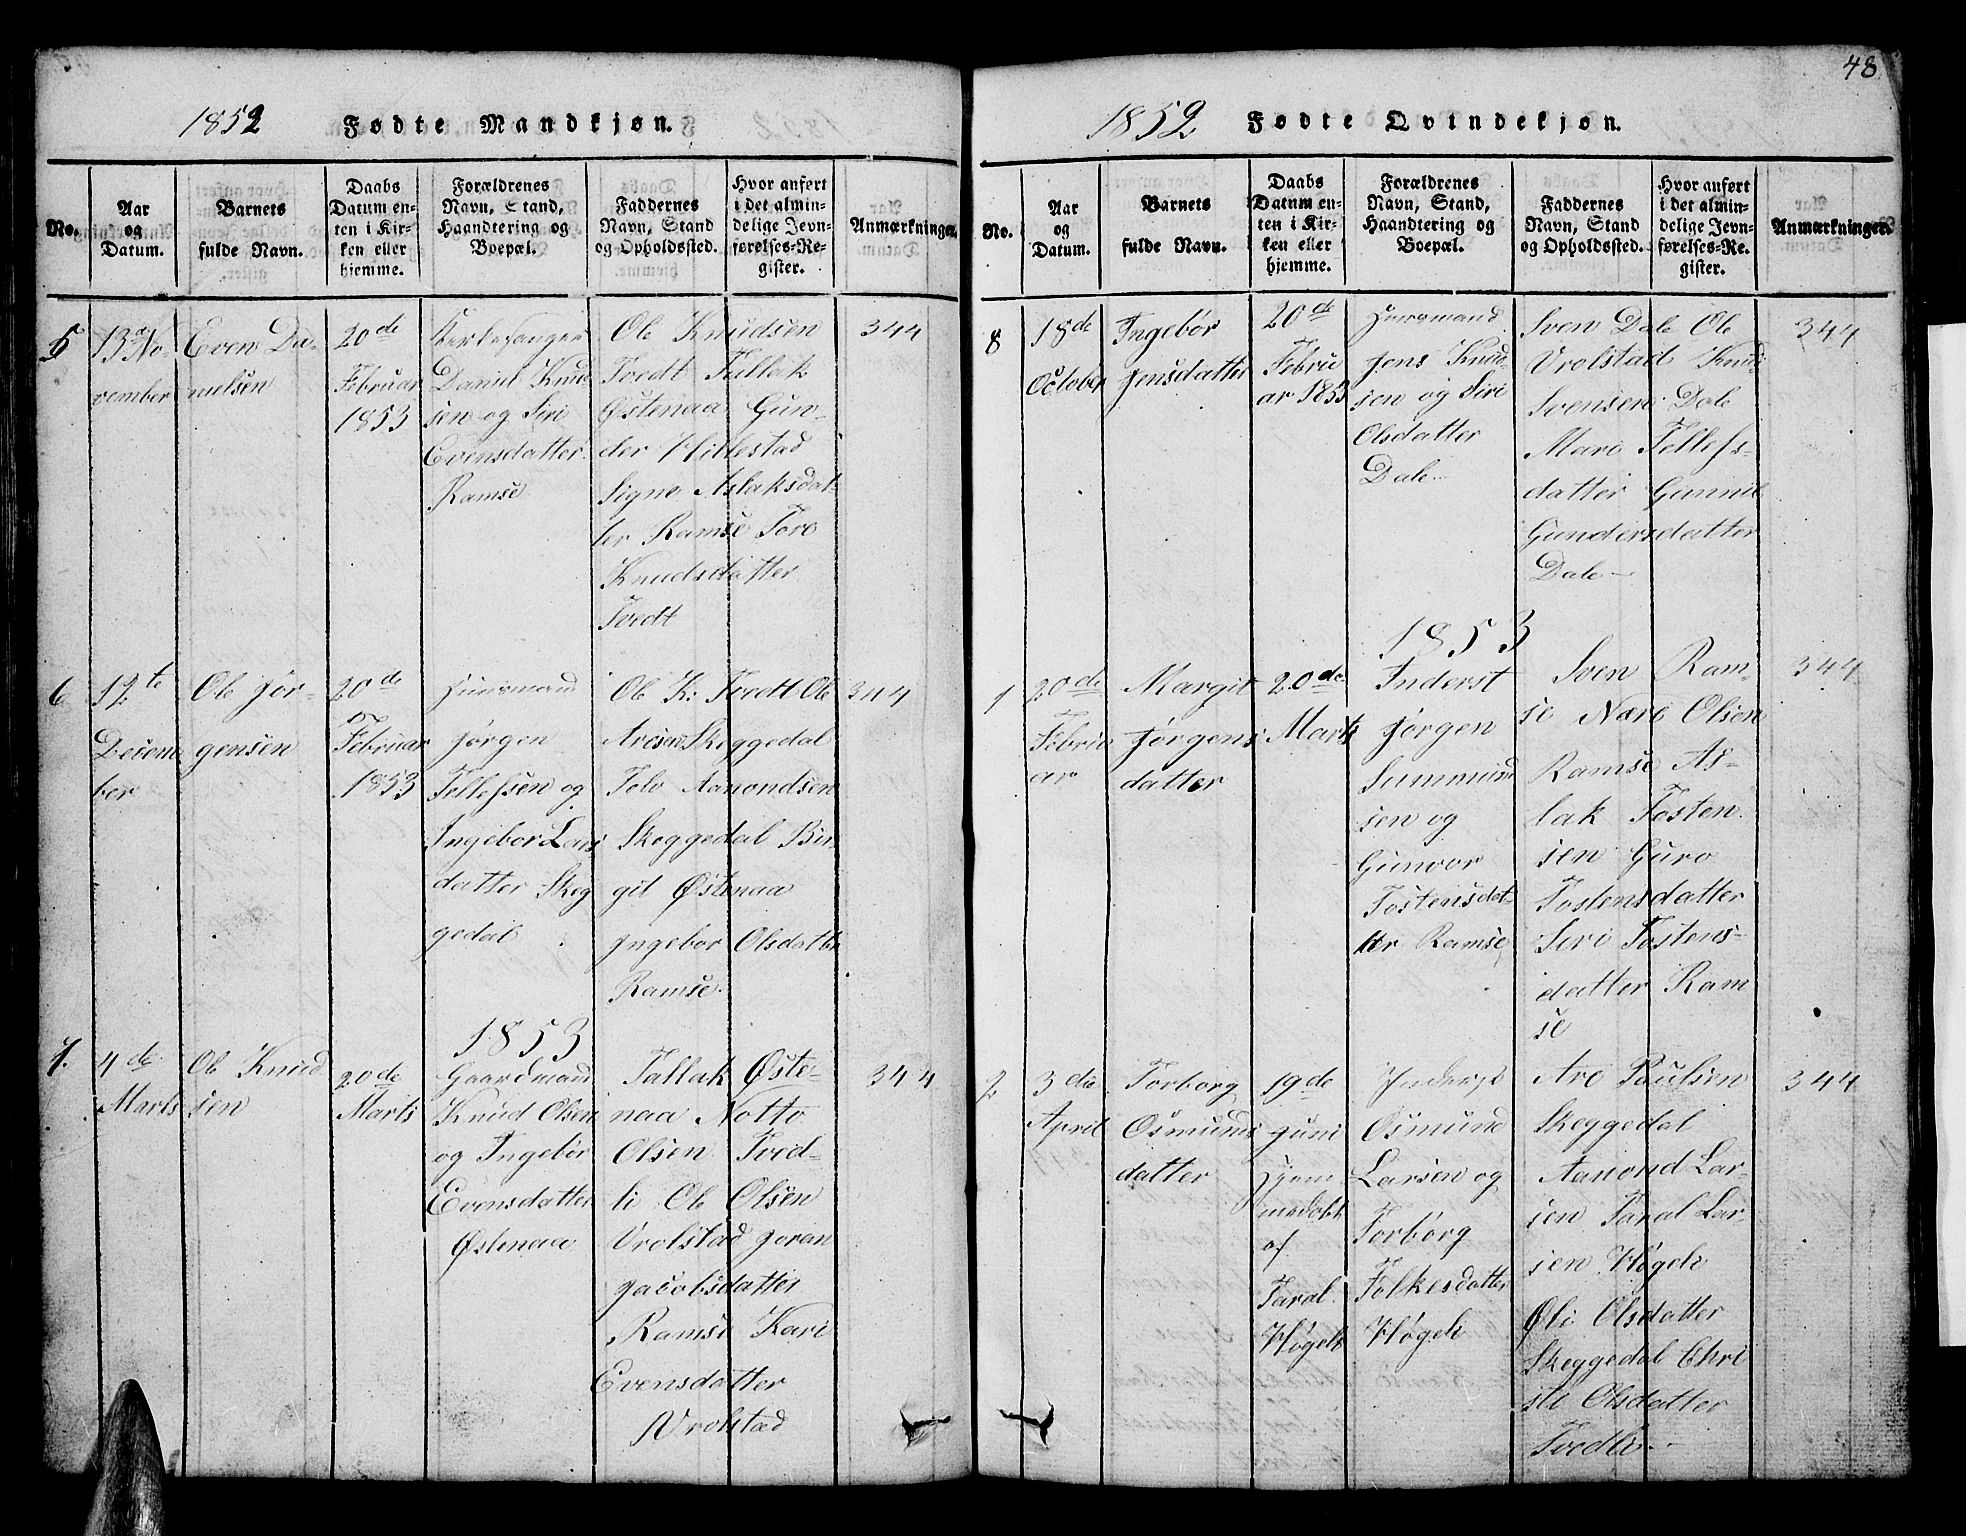 48.
1852 Fødte Mandkjøn.
No.
Aar
og
Datum.
Barnets
fulde Navn.
Daabs
Datum en-
ten i Kir-
ken eller
hjemme.
Forældrenes
Navn, Stand,
Haandtering og
Boepæl.
Faddernes
Navn, Stand
og Opholdssted.
Hvor anført
i det almin-
delige Jevn-
førelses-Re-
gister.
Anmærkninger.
5
13de No-
vember
Even Da-
nielsen
20de
Februar
1853
Kirkesanger
Daniel Knud
sen og Siri
Evensdatter
Ramse
Ole Knudsen
Tvedt Tallak
Østenaa Gun-
der Hillestad
Signe Aslaksdat-
ter Ramse Tore
Knudsdatter
Tvedt
344
6
12te
Decem
ber
Ole Jør-
gensen
20de
Februar
1853
Huusmand
Jørgen
Tellefsen og
Ingebor Lars
datter Skeg
gedal
Ole K: Tvedt Ole
Aresen Skeggedal
Tolv Aamondsen
Skeggedal Bir
git Østenaa
Ingebor Olsdatter
Ramse.
344
1853
7.
4de
Marts
Ole Knud
sen
20de
Marts
Gaardmand
Knud Olsen
og Ingebør
Evensdatter
Østenaa
Tallak Øste-
naa Notto
Olsen Tved-
li Ole Olsen
Vrolstad Joran
Jacobsdatter
Ramse Kari
Evensdatter
Vrolstad
344
1852 Fødte Qvindekjøn.
No.
Aar
og
Datum.
Barnets
fulde Navn.
Daabs
Datum en-
ten i Kir-
ken eller
hjemme.
Forældrenes
Navn, Stand,
Haandtering og
Boepæl.
Faddernes
Navn, Stand
og Opholdssted.
Hvor anført
i det almin-
delige Jevn-
førelses-Re-
gister.
Anmærkninger.
8
18de
October
Ingebør
Jensdatter
20de
Febru
ar 1853
Huusmand
Jens Knud-
sen og Siri
Olsdatter
Dale
Sven Dale Ole
Vrolstad Knud
Svensen Dale
Mari Tellefs-
datter Gunnil
Gundersdatter
Dale
344
1853
1
20de
Febru
ar
Margit
Jørgens
datter
20de
Marts
Inderst
Jørgen
Summund
sen og
Gunvor
Tostensdat-
ter Ramse
Sven Ram-
se Nære Olsen
Ramse As-
lak Tosten
sen Guro
Tostensdatter
Seri Tostens-
datter Ram
se
344
2
3die
April
Torborg
Osmunds
datter
19de
Juni
Hjem
medøbt
af
Taral
Høgeli
Inderst
Osmund
Larsen og
Torborg
Folkesdatter
Høgeli
Are Paulsen
Skeggedal
Aamond Lar-
sen Taral Lar-
sen Høgeli
Øli Olsdatter
Skeggedal Chri
sti Olsdatter
Tvedli
344